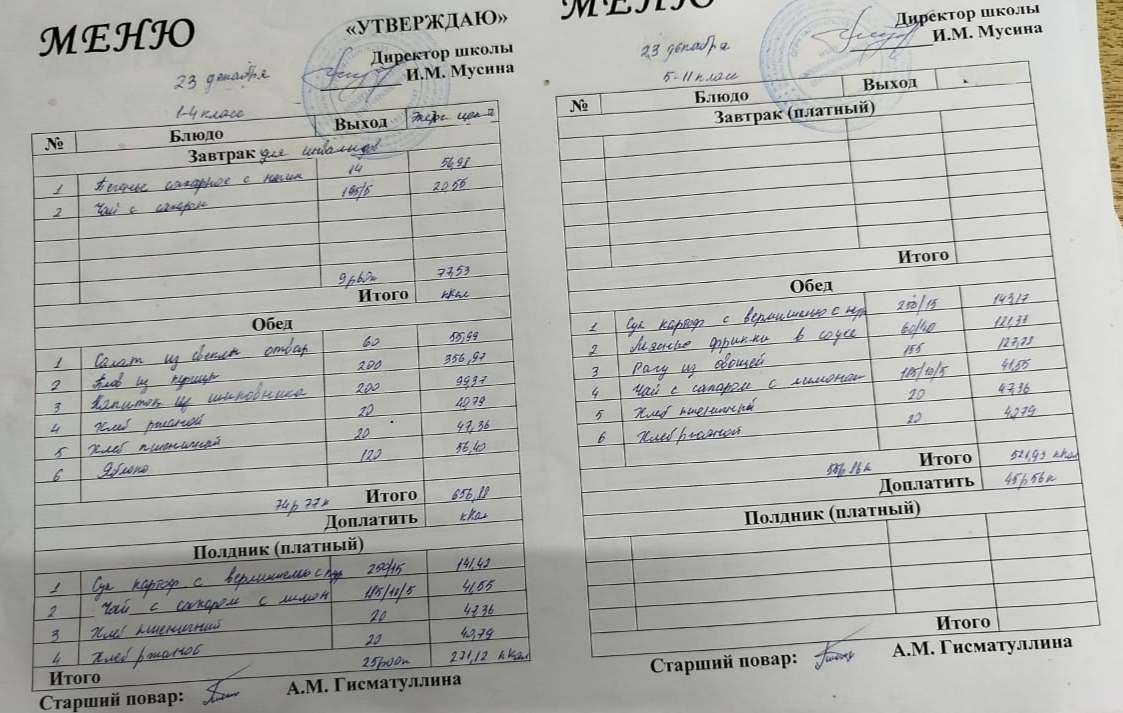 МЕНЮ
«УТВЕРЖДАЮ»
Директор школы
И.М. Мусина
23 декабря
1-4 класс
№ Блюдо Выход Энерг. цен-ть
Завтрак для инвалидов
1 Печенье сахарное с 14 56,98
2 Чай с сахаром 195/5 20,55
9р60к 77,53
Итого кКал
Обед
1 Салат из свеклы отвар 60 55,99
2 Плов из курицы 200 356,97
3 Напиток из шиповника 200 99,37
4 Хлеб ржаной 20 40,79
5 Хлеб пшеничный 20 47,36
6 Яблоко 120 56,40
74р 77к Итого 656,88
Доплатить кКал
Полдник (платный)
1 Суп картоф с вермишелью с кур 250/15 141,42
2 Чай с сахаром с лимон 185/10/5 41,55
3 Хлеб пшеничный 20 47,36
4 Хлеб ржаной 20 40,79
Итого 25р00к 271,12 кКал
Старший повар: А.М. Гисматуллина
МЕНЮ
Директор школы
И.М. Мусина
23 декабря
5-11 класс
№ Блюдо Выход
Завтрак (платный)
Итого
Обед
1 Суп картоф с вермишелью с кур 250/15 143,17
2 Мясные фрикки в соусе 60/40 121,33
3 Рагу из овощей 155 127,73
4 Чай с сахаром с лимоном 185/10/5 41,55
5 Хлеб пшеничный 20 47,36
6 Хлеб ржаной 20 40,79
Итого 521,93 кКал
Доплатить 45р56к
Полдник (платный)
Итого
Старший повар: А.М. Гисматуллина